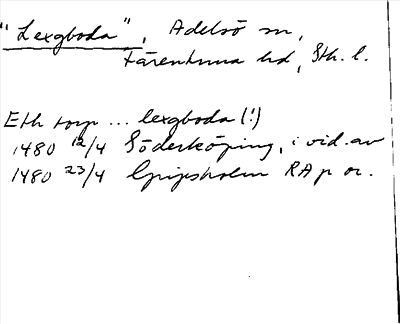 "Lexgboda", Adelsö sn,
Färentuna hd, Sth. l.
Eth torp ... lexgboda (!)
1480 12/4 Söderköping, i vid. av
1480 23/4 Gripsholm RAp or.